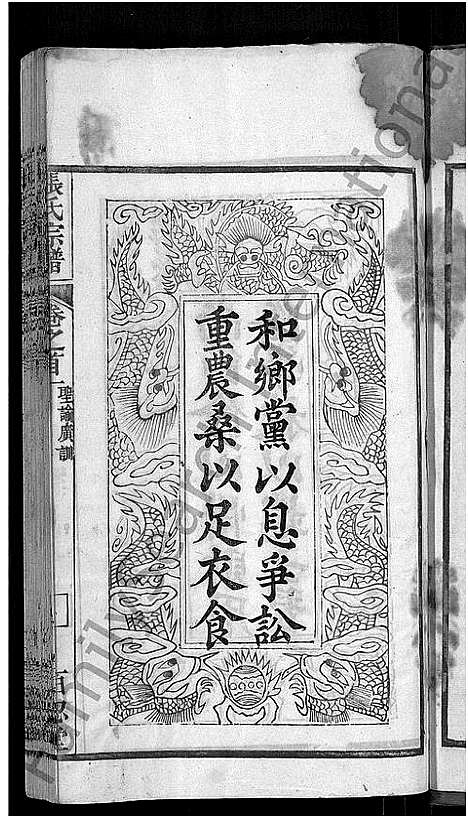 和鄉黨以息爭訟
重農桑以足衣食
張氏宗譜
卷之首
聖諭廣訓
百忍堂